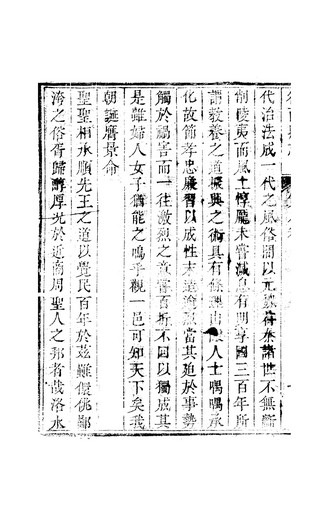 代治法成一代之風俗間以元魏苻秦諸世不無斷
制陵夷而風土惇龐未嘗滅息有明享國三百年所
謂教養之道振興之術具有條理由是人士喁喁承
化故節孝忠廉習以成性末造當其迫於事勢
觸於禍害而一往激烈之意嘗百折不回以獨成其
是雖婦人女子猶能之嗚乎觀一邑可知天下矣我
朝誕膺景命
聖聖相承順先王之道以覺民百年於茲雖儇佻鄙
洿之俗胥歸醇厚况於近南周聖人之邦者哉洛水